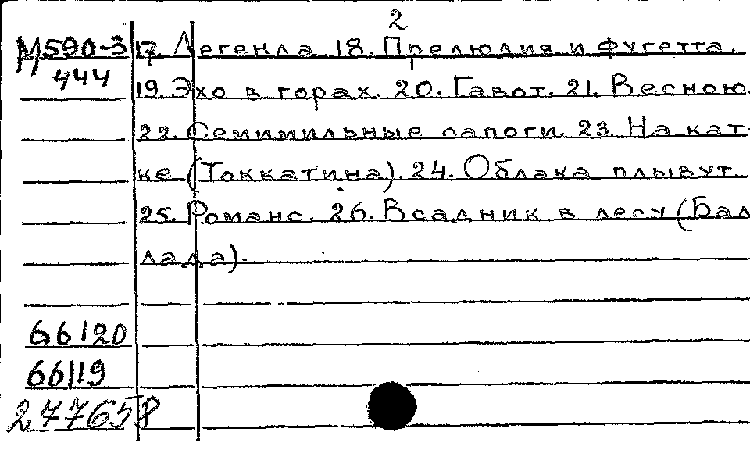 2
М590-3 17. Легенда. 18. Прелюдия и фугетта.
444 19. Эхо в горах. 20. Гавот. 21. Весною.
22. Семимильные сапоги. 23. На кат-
ке (Токкатина). 24. Облака плывут.
25. Романс. 26. Всадник в лесу (Бал
лада).
66120
66119
277658